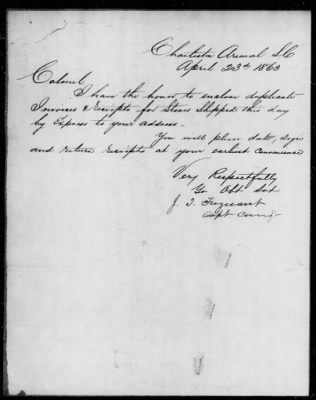 Charleston Arsenal S.C
April 23rd 1863
Colonel
I have the honor to enclose duplicate
Invoices & Receipts for Stores Shipped this day
by Express to your address.
You will please date, sign
and return receipts at your earliest convenience
Very Respectfully
Yr Obt Svt
J. T. Trezevant
Capt Comdg